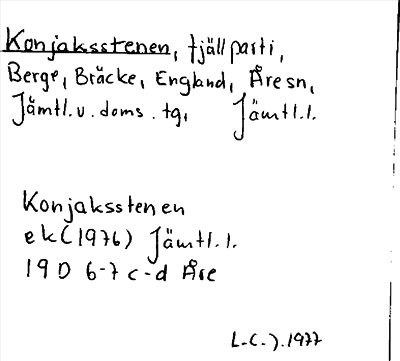 Konjaksstenen, fjällparti,
Berge, Bräcke, England, Åresn,
Jämtl.v. doms. tg, Jämtl.l.
Konjaksstenen
ek (1976) Jämtl.l.
19 D 6-7 c-d Åre
L-C.J. 1977